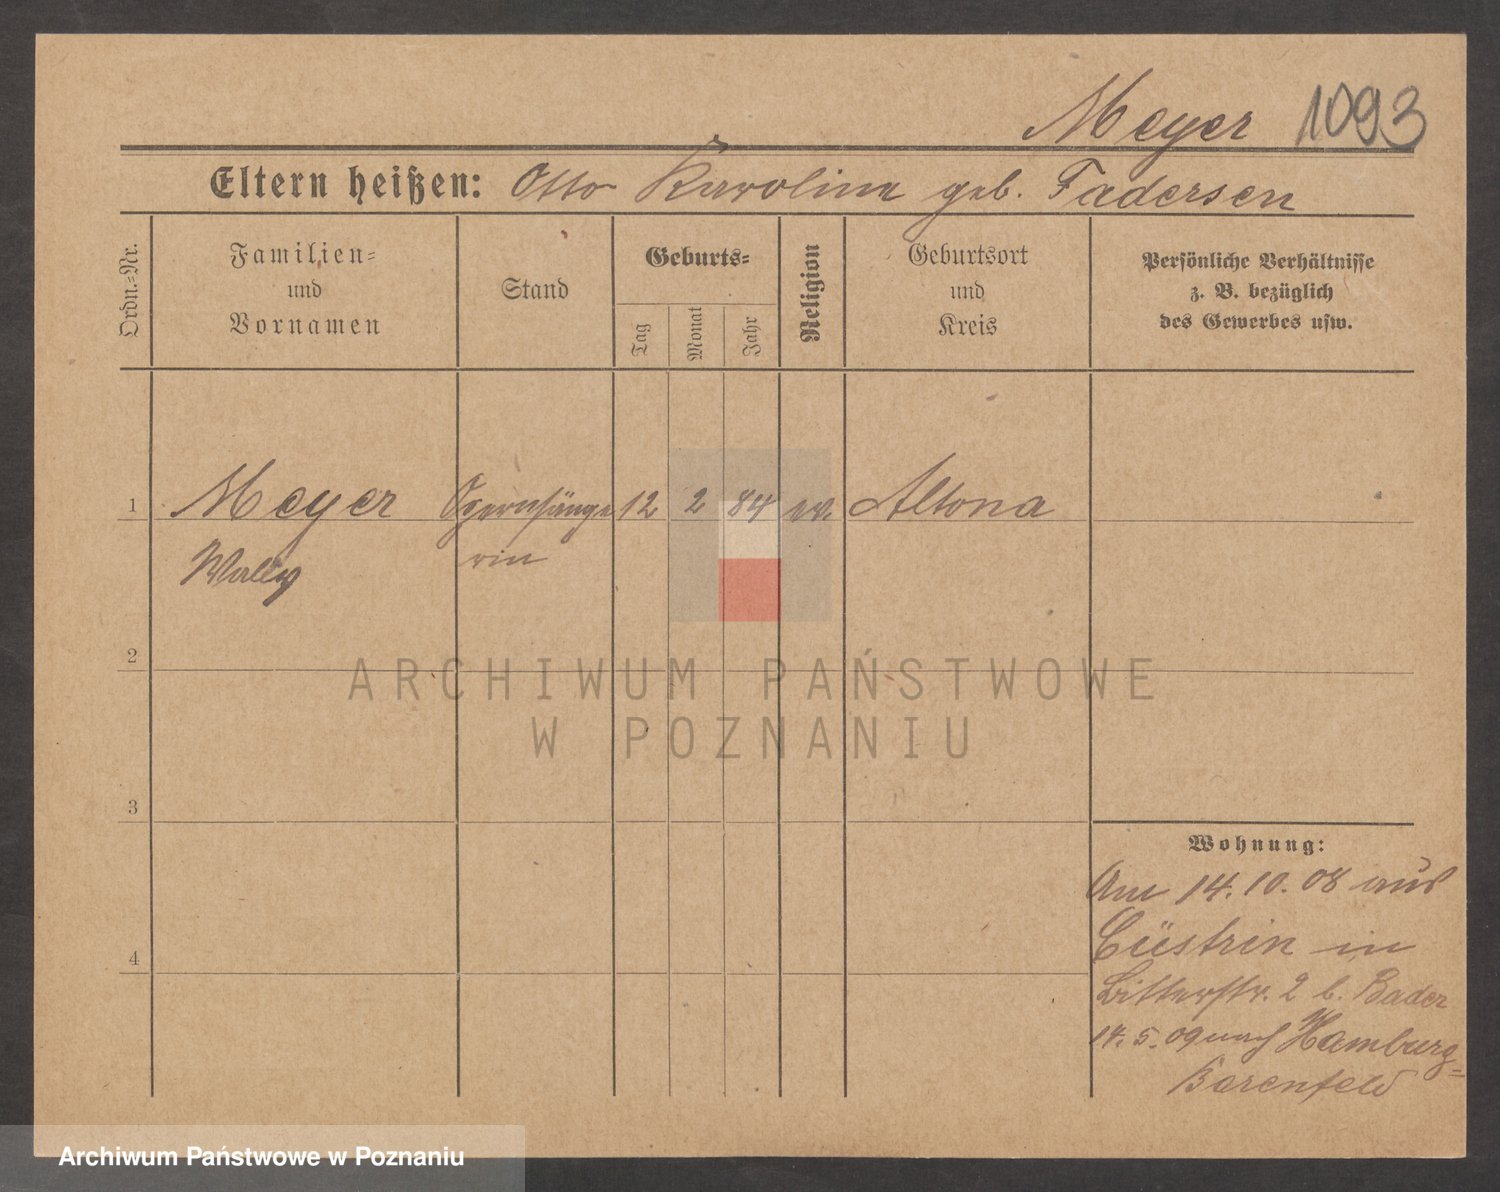 Meyer 1093
Eltern heißen: Otto Karolina geb. Fadersen
Ordn.=Nr.
Familien=
und
Vornamen
Stand
Geburts=
Tag
Monat
Jahr
Religion
Geburtsort
und
Kreis
Persönliche Verhältnisse
z. B. bezüglich
des Gewerbes usw.
1 Meyer Opernsänge 12 2 84 ev. Altona
Wally rin
2
3
4
Wohnung:
Am 14. 10. 08 aus
Cüstrin in
Ritterstr. 2 b. Bader
14. 5. 09 nach Hamburg=
Barenfeld
ARCHIWUM PAŃSTWOWE
W POZNANIU
Archiwum Państwowe w Poznaniu